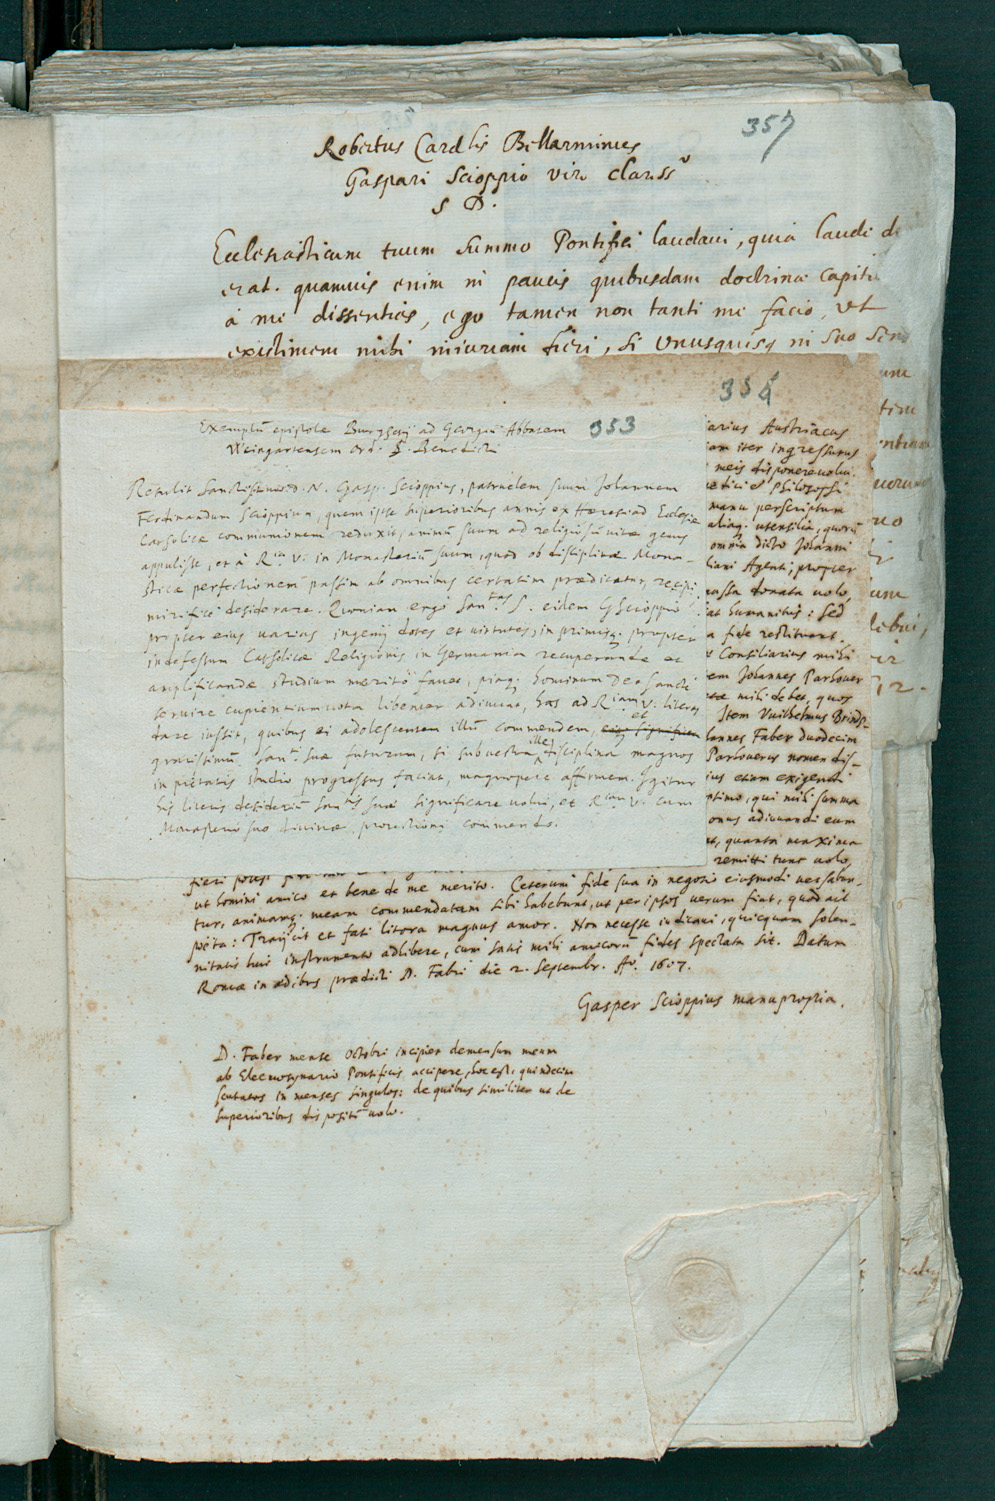 357
Robertus Cardlis Bellarminus
Gaspari Scioppio viro clariss°
S D.
Ecclesiasticum tuum Summo Pontifici laudavi, quia laude di
erat. quamvis enim in paucis quibusdam doctrinae capiti
à me dissentias, ego tamen non tanti me facio, ut
existimem mihi iniuriam fieri, si unusquisq in suo sens
354
353
Exemplū epistolae Burghesij ad Georgiū Abbatem
Weingartensem Ord. S. Benedicti
Retulit Sanctissimo D. N. Gasp. Scioppius, patruelem suum Johannem
Ferdinandum Scioppium, quem ipse superioribus annis ex Haeresi ad Ecclesiae
Catholicae communionem reduxit, animū suum ad religiosū vitae genus
appulisse, et à R. V. in Monasterium suum, quod ob disciplinae Mona-
sticae perfectionem passim ab omnibus certatim praedicatur, recipi
mirificè desiderare. Quoniam ergò Sanctas S. eidem G Scioppio
propter eius varias ingenij dotes et virtutes, in primisq. propter
indefessum Catholicae Religionis in Germania recuperandae et
amplificandae studium meritò favet, piaq. hominum Deo sancti
servire cupientium vota libenter adiuvat, has ad R. V. literas
dare iussit, quibus ei adolescentem illū commendem, et
gratissimū Santi suae futurum, si sub vestra illa disciplina magnos
in pietatis studio progressus faciat, magnopere affirmem. Igitur
his literis desideriū Santis suae significare volui, et R. V. cum
Monasterio suo divinae protectioni commendo.
arius Austriacus
iam iter ingressurus
meis disponere volui
manu perscriptum
aliaq. utensilia, quorū
omnia dicto Johanni
liani Agenti, propter
massa donata volo
iat humanitus: sed
a fide restituent.
s Consiliarius mihi
em Johannes Parbouer
mihi debet, quos
Item Vuilhelmus
annes Faber duodecim
Parboverus nomen dis-
ius etiam exigendi
ptimo, qui mihi summa
onus adiuvandi eum
nt, quanta maxima
remitti tunc volo
fieri
ut homini amico et bene de me merito. Ceterum fide sua in negotio eiusmodi versabun-
tur, animamq. meam commendatam sibi habebunt, ut per ipsos verum fiat, quod ait
poëta: Traijcit et fati litora magnus amor. Non necesse iudicavi, quicquam solen-
nitatis huic instrumento adhibere, cum satis mihi amicorū fides spectata sit. Datum
Romae in aedibus praedicti D. Fabri die 2. Septembr. Aō. 1607.
Gasper Scioppius manu propria.
D. Faber mense Octobri incipiet demensum meum
ab Eleemosynario Pontificis accipere, hoc est, quindecim
scutatos in menses singulos: de quibus similiter ut de
superioribus dispositū volo.